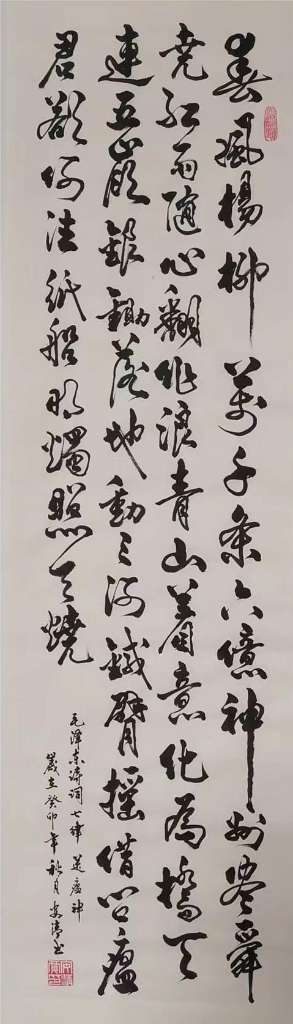 春風楊柳萬千条六億神州盡舜
尭紅雨隨心翻作浪青山着意化為橋天
連五嶺銀鋤落地動三河鐵臂搖借问瘟
君欲何往紙船明燭照天燒
毛澤東詩詞七律送瘟神
歲在癸卯年秋月安濤书